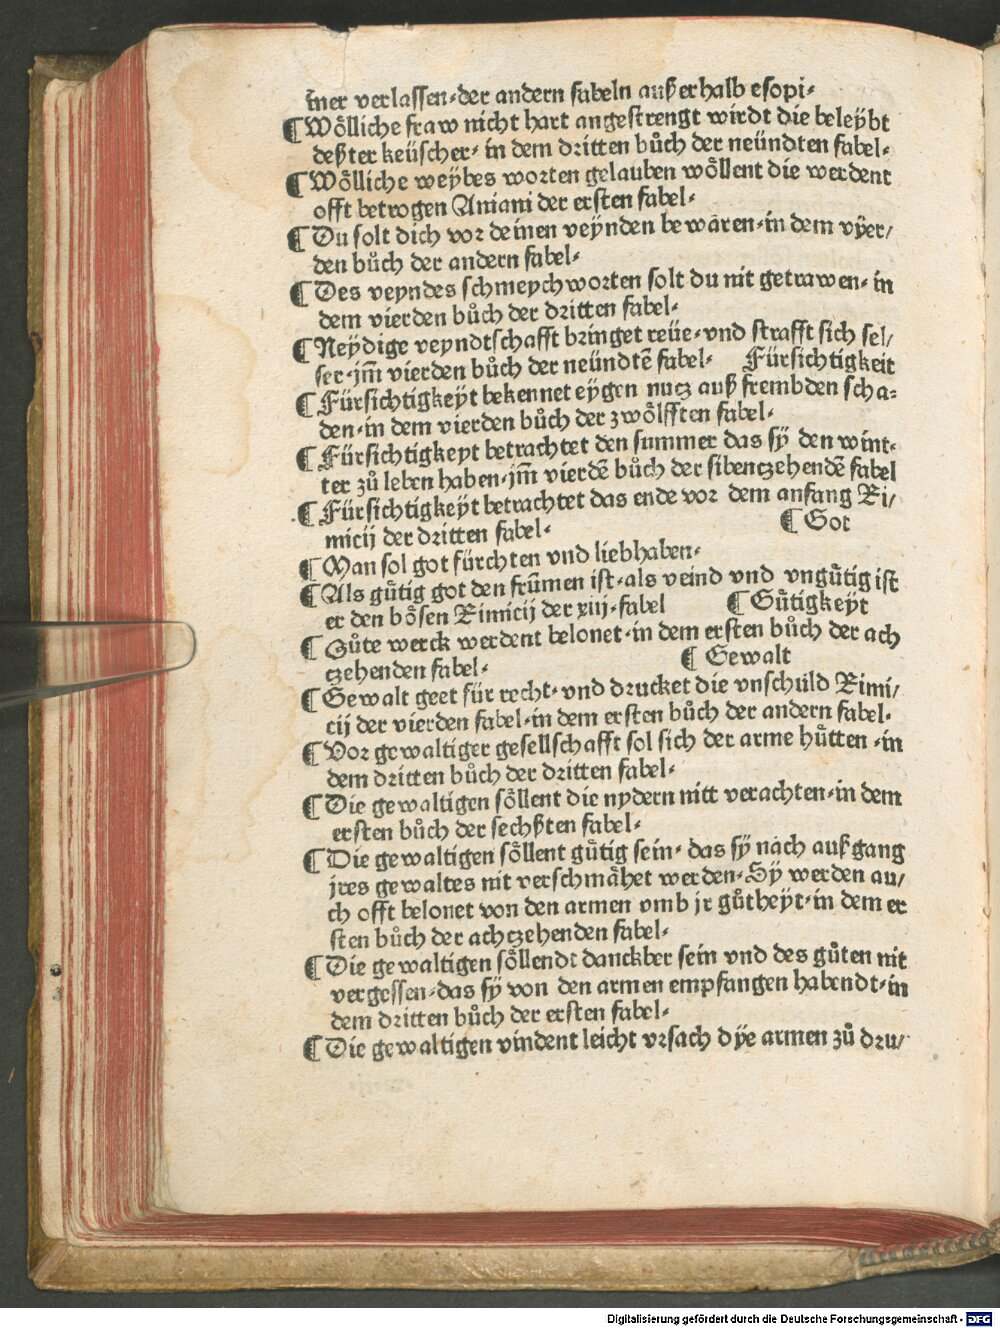 m̃er verlassen·der andern fabeln außerhalb esopi·
¶ Woͤlliche fraw nicht hart angestrengt wirdt die beleÿbt
deßter keüscher· in dem dritten bůch der neündten fabel·
¶ Woͤlliche weÿbes worten gelauben woͤllent die werdent
offt betrogen Aniani der ersten fabel·
¶ Du solt dich vor deinen veÿnden bewaren·in dem vÿer/
den bůch der andern fabel·
¶ Des veyndes schmeychworten solt du nit getrawen· in
dem vierden bůch der dritten fabel·
¶ Neÿdige veyndtschafft bringet reüe·vnd strafft sich sel/
ber·jm̃ vierden bůch der neündtẽ fabel· Fürsichtigkeit
¶ Fürsichtigkeÿt bekennet eÿgen nucz auß frembden scha⸗
den·in dem vierden bůch der zwoͤlfften fabel·
¶ Fürsichtigkeyt betrachtet den summer das sÿ den wint⸗
ter zů leben haben·jm̃ vierdẽ bůch der sibenczehendẽ fabel
¶ Fürsichtigkeÿt betrachtet das ende vor dem anfang Ri/
micij der dritten fabel· ¶ Got
¶ Man sol got fürchten vnd liebhaben·
¶ Als guͤtig got den frũmen ist·als veind vnd vnguͤtig ist
er den boͤsen Rimicij der xiij·fabel ¶ Guͤtigkeÿt
¶ Gůte werck werdent belonet·in dem ersten bůch der ach
czehenden fabel· ¶ Gewalt
¶ Gewalt geet für recht·vnd drucket die vnschuld Rimi/
cij der vierden fabel·in dem ersten bůch der andern fabel·
¶ Vor gewaltiger gesellschafft sol sich der arme huͤtten ·in
dem dritten bůch der dritten fabel·
¶ Die gewaltigen soͤllent die nydern nitt verachten·in dem
ersten bůch der sechßten fabel·
¶ Die gewaltigen soͤllent guͤtig sein· das sÿ nach außgang
jres gewaltes nit verschmaͤhet werden·Sÿ werden au/
ch offt belonet von den armen vmb jr gůtheÿt·in dem er
sten bůch der achczehenden fabel·
¶ Die gewaltigen soͤllendt danckber sein vnd des gůten nit
vergessen·das sÿ von den armen empfangen habendt·in
dem dritten bůch der ersten fabel·
¶ Die gewaltigen vindent leicht vrsach dÿe armen zů dru/
Digitalisierung gefördert durch die Deutsche Forschungsgemeinschaft - DFG